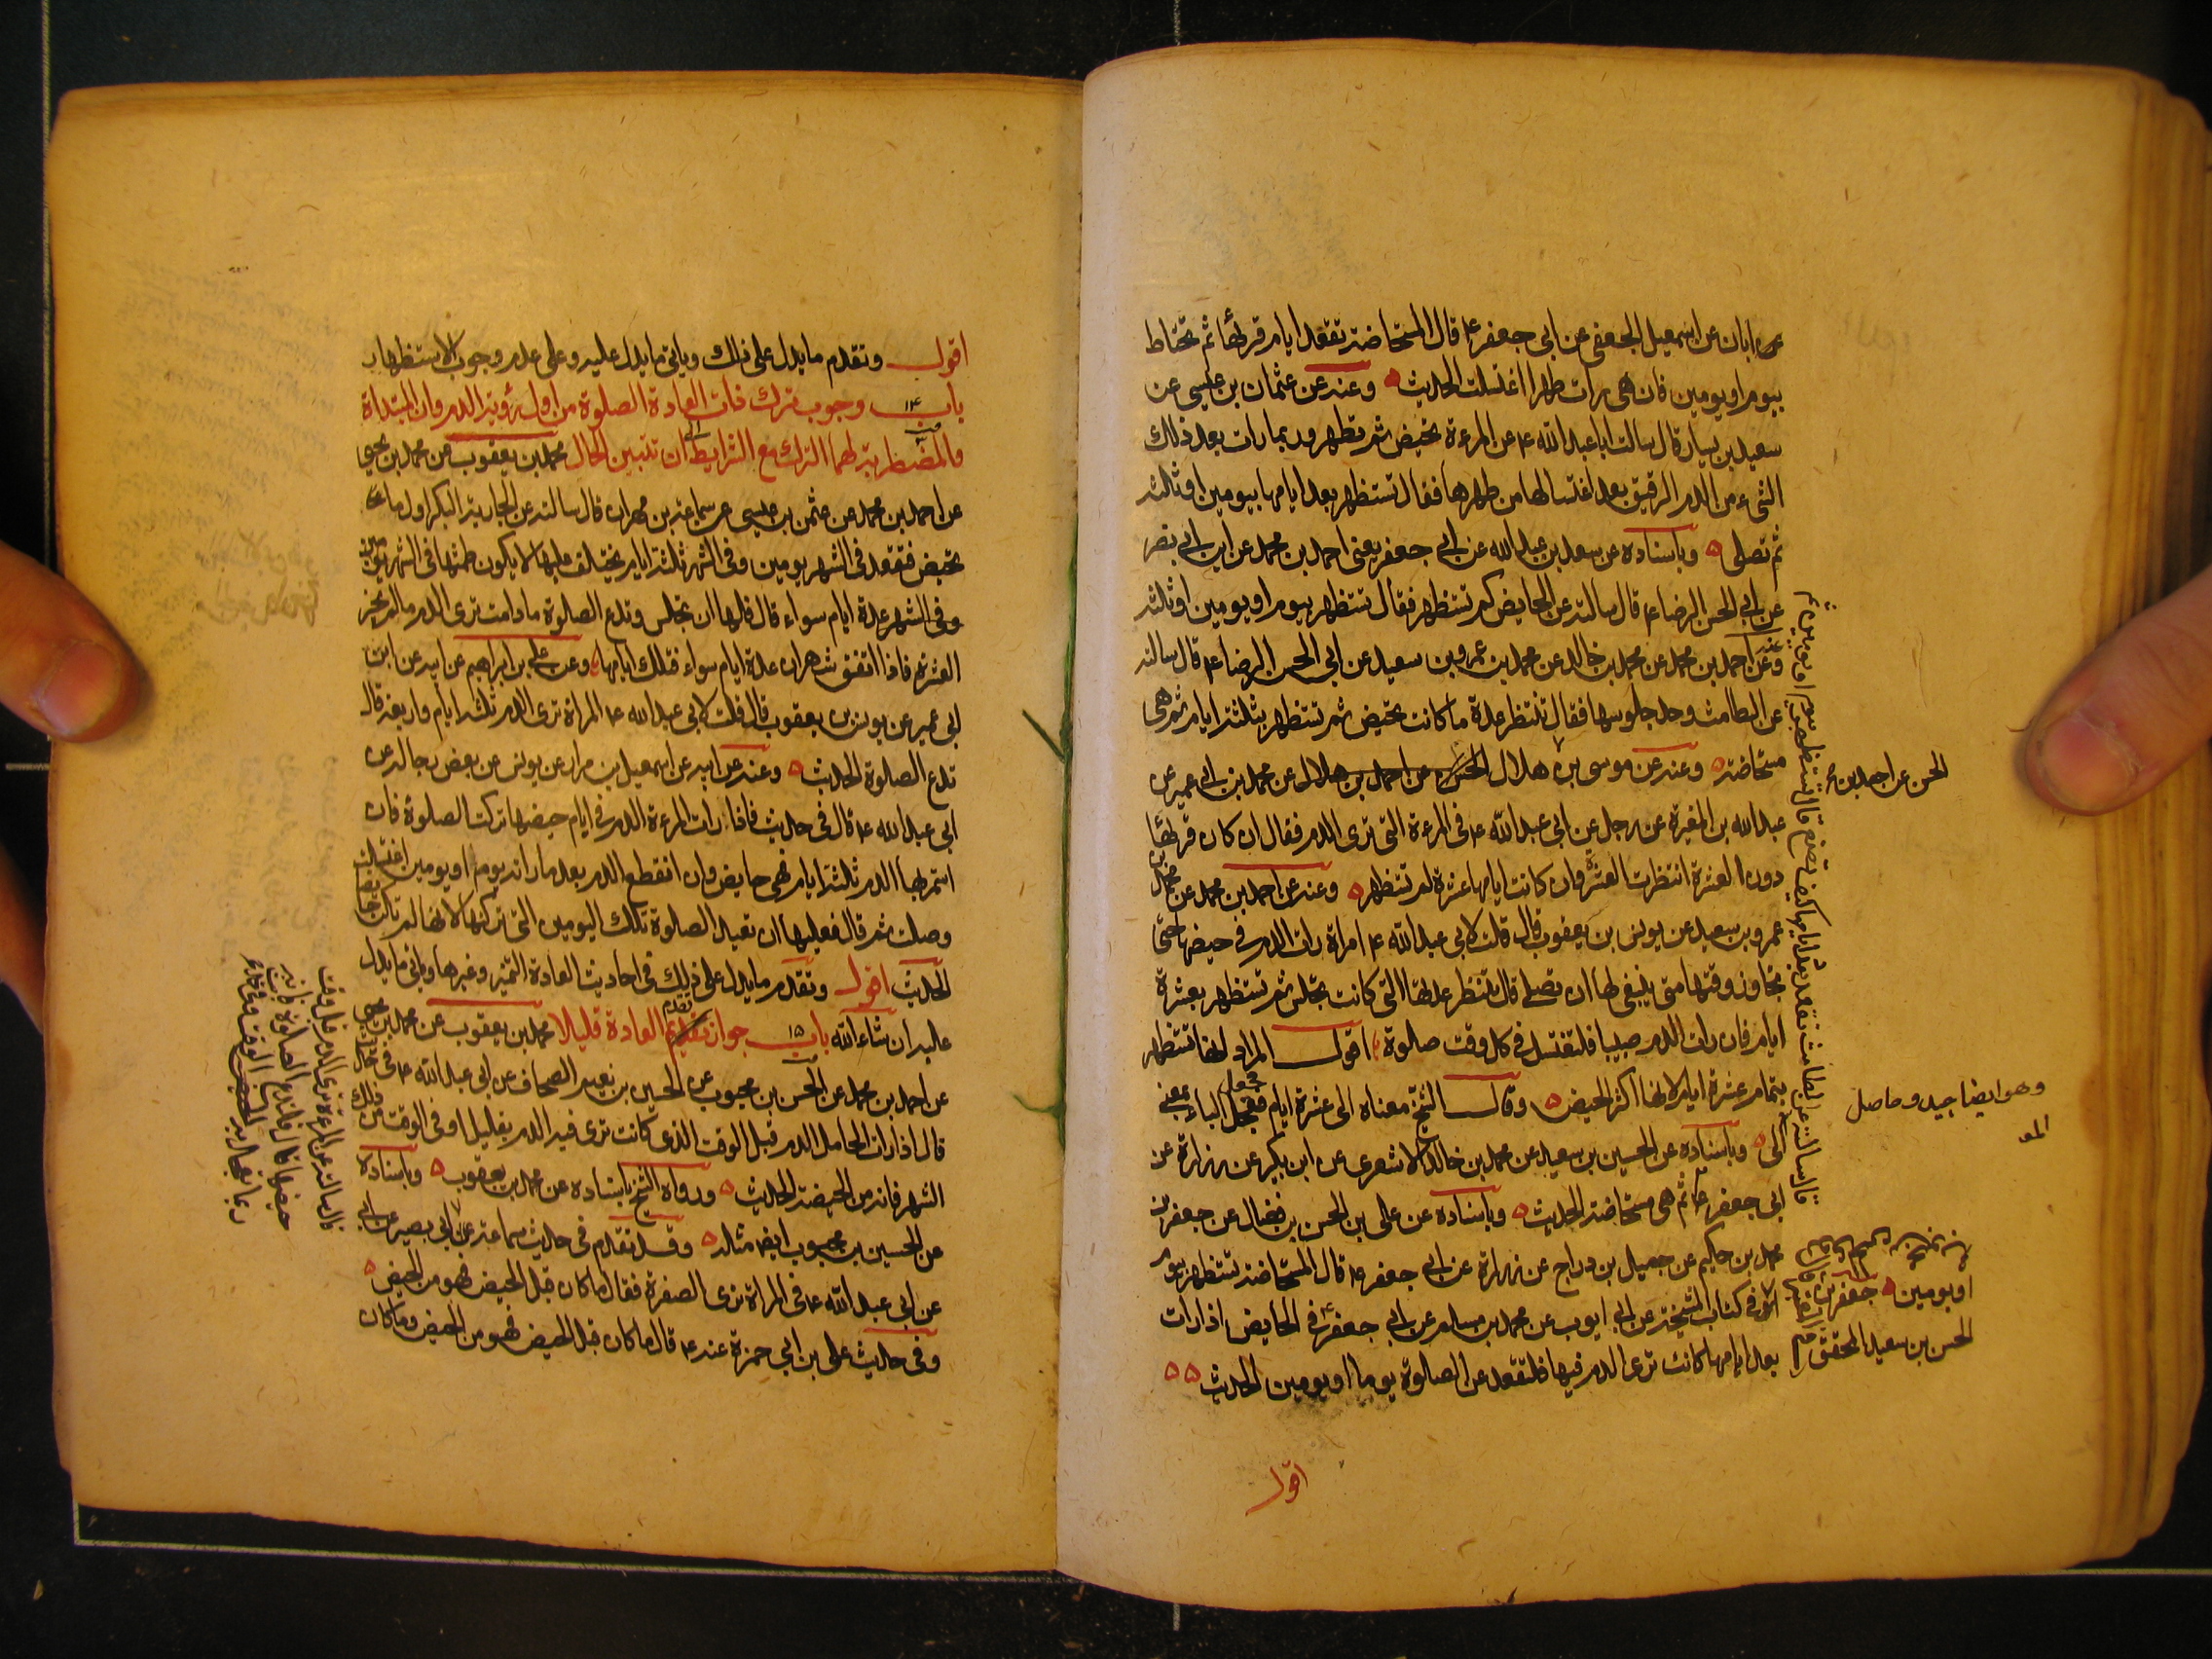 عن ابان عن اسمعيل الجعفى عن ابى جعفر ع قال المستحاضة تقعد ايام قرئها ثم تحتاط
بيوم او يومين فان هى رات طهرا اغتسلت الحديث ٥ وعنه عن عثمان بن عيسى عن
سعيد بن يسار قال سالت ابا عبد الله ع عن المرءة تحيض ثم تطهر وربما رات بعد ذلك
الشىء من الدم الرقيق بعد اغتسالها من طهرها فقال تستظهر بعد ايامها بيومين او ثلثة
ثم تصلى ٥ وباسناده عن سعد بن عبد الله عن ابى جعفر يعنى احمد بن محمد عن ابن ابى نصر
عن ابى الحسن الرضا ع قال سالته عن الحايض كم تستظهر فقال تستظهر بيوم او يومين او ثلثة
وعنه عن احمد بن محمد عن محمد بن خالد عن محمد بن عمرو بن سعيد عن ابى الحسن الرضا ع قال سالته
عن الطامث وحد جلوسها فقال تنتظر عدة ما كانت تحيض ثم تستظهر بثلثة ايام ثم هى
مستحاضة ٥ وعنه عن موسى بن الحسن عن احمد بن هلال عن محمد بن ابى عمير عن
عبد الله بن المغيرة عن رجل عن ابى عبد الله ع فى المرءة التى ترى الدم فقال ان كان قرئها
دون العشرة انتظرت العشرة وان كانت ايامها عشرة لم تستظهر ٥ وعنه عن احمد بن محمد عن محمد بن
عمرو بن سعيد عن يونس بن يعقوب قال قلت لابى عبد الله ع امراة رات الدم فى حيضها حتى
تجاوز وقتها متى ينبغى لها ان تصلى قال تنتظر عدتها التى كانت تجلس ثم تستظهر بعشرة
ايام فان رات الدم صبيبا فلتغتسل فى كل وقت صلوة اقول المراد انها تستظهر
بتمام عشرة ايام لانها اكثر الحيض ٥ وقال الشيخ معناه الى عشرة ايام فجعل الباء بمعنى
الى ٥ وباسناده عن الحسين بن سعيد عن محمد بن خالد الاشعرى عن ابن بكير عن زرارة عن
ابى جعفر ع ثم هى مستحاضة الحديث ٥ وباسناده عن على بن الحسن بن فضال عن جعفر بن
محمد بن حكيم عن جميل بن دراج عن زرارة عن ابى جعفر ع قال المستحاضة تستظهر بيوم
او يومين ٥ جعفر بن
الحسن بن سعيد المحقق
فى كتاب المشيخة عن ابى ايوب عن محمد بن مسلم عن ابى جعفر ع فى الحايض اذا رات
بعد ايامها كانت ترى الدم فيها فلتقعد عن الصلوة يوما او يومين الحديث ٥٥
اقول
الحسن عن احمد بن
وهو ايضا جيد وحاصل
قال سالته عن الطامث تقعد بعدد ايامها كيف تصنع قال تستظهر بيوم او يومين ثم
اقول وتقدم ما يدل على ذلك وياتى ما يدل عليه وعلى عدم وجوب الاستظهار
باب ١٤ وجوب ترك ذات العادة الصلوة من اول رؤية الدم وان المبتداة
والمضطربة لهما الترك مع الشرايط الى ان تتبين الحال محمد بن يعقوب عن محمد بن يحيى
عن احمد بن محمد عن عثمن بن عيسى عن سماعة بن مهران قال سالته عن الجارية البكر اول ما
تحيض فتقعد فى الشهر يومين وفى الشهر ثلثة ايام يختلف عليها لا يكون طمثها فى الشهر
وفى الشهر عدة ايام سواء قال فلها ان تجلس وتدع الصلوة ما دامت ترى الدم ما لم يجز
العشرة فاذا اتفق شهران عدة ايام سواء فتلك ايامها وعن على بن ابراهيم عن ابيه عن ابن
ابى عمير عن يونس بن يعقوب قال قلت لابى عبد الله ع المراة ترى الدم ثلثة ايام واربعة قال
تدع الصلوة الحديث ٥ وعنه عن ابيه عن اسمعيل بن مرار عن يونس عن بعض رجاله عن
ابى عبد الله ع قال فى حديث فاذا رات المرءة الدم فى ايام حيضها تركت الصلوة فان
استمر بها الدم ثلثة ايام فهى حايض وان انقطع الدم بعد ما راته يوما او يومين اغتسلت
وصلت ثم قال فعليها ان تعيد الصلوة تلك اليومين التى تركتها لانها لم تكن حايضا
الحديث اقول وتقدم ما يدل على ذلك فى احاديث العادة التميز وغيرها وياتى ما يدل
عليه ان شاء الله باب ١٥ جواز تقدم العادة قليلا محمد بن يعقوب عن محمد بن يحيى
عن احمد بن محمد عن الحسن بن محبوب عن الحسين بن نعيم الصحاف عن ابى عبد الله ع فى
قال اذا رات الحامل الدم قبل الوقت الذى كانت ترى فيه الدم بقليل او فى الوقت من ذلك
الشهر فانه من الحيضة الحديث ٥ ورواه الشيخ باسناده عن محمد بن يعقوب ٥ وباسناده
عن الحسين بن محبوب ايضا مثله ٥ وقد تقدم فى حديث سماعة عن ابى بصير عن ابى
عن ابى عبد الله ع فى المراة ترى الصفرة فقال ما كان قبل الحيض فهو من الحيض ٥
وفى حديث على بن ابى حمزة عنه ع قال ما كان قبل الحيض فهو من الحيض وما كان
قال سالته عن المرءة ترى الدم قبل وقت
حيضها قال فلتدع الصلوة فانه
ربما تعجل بها الوقت